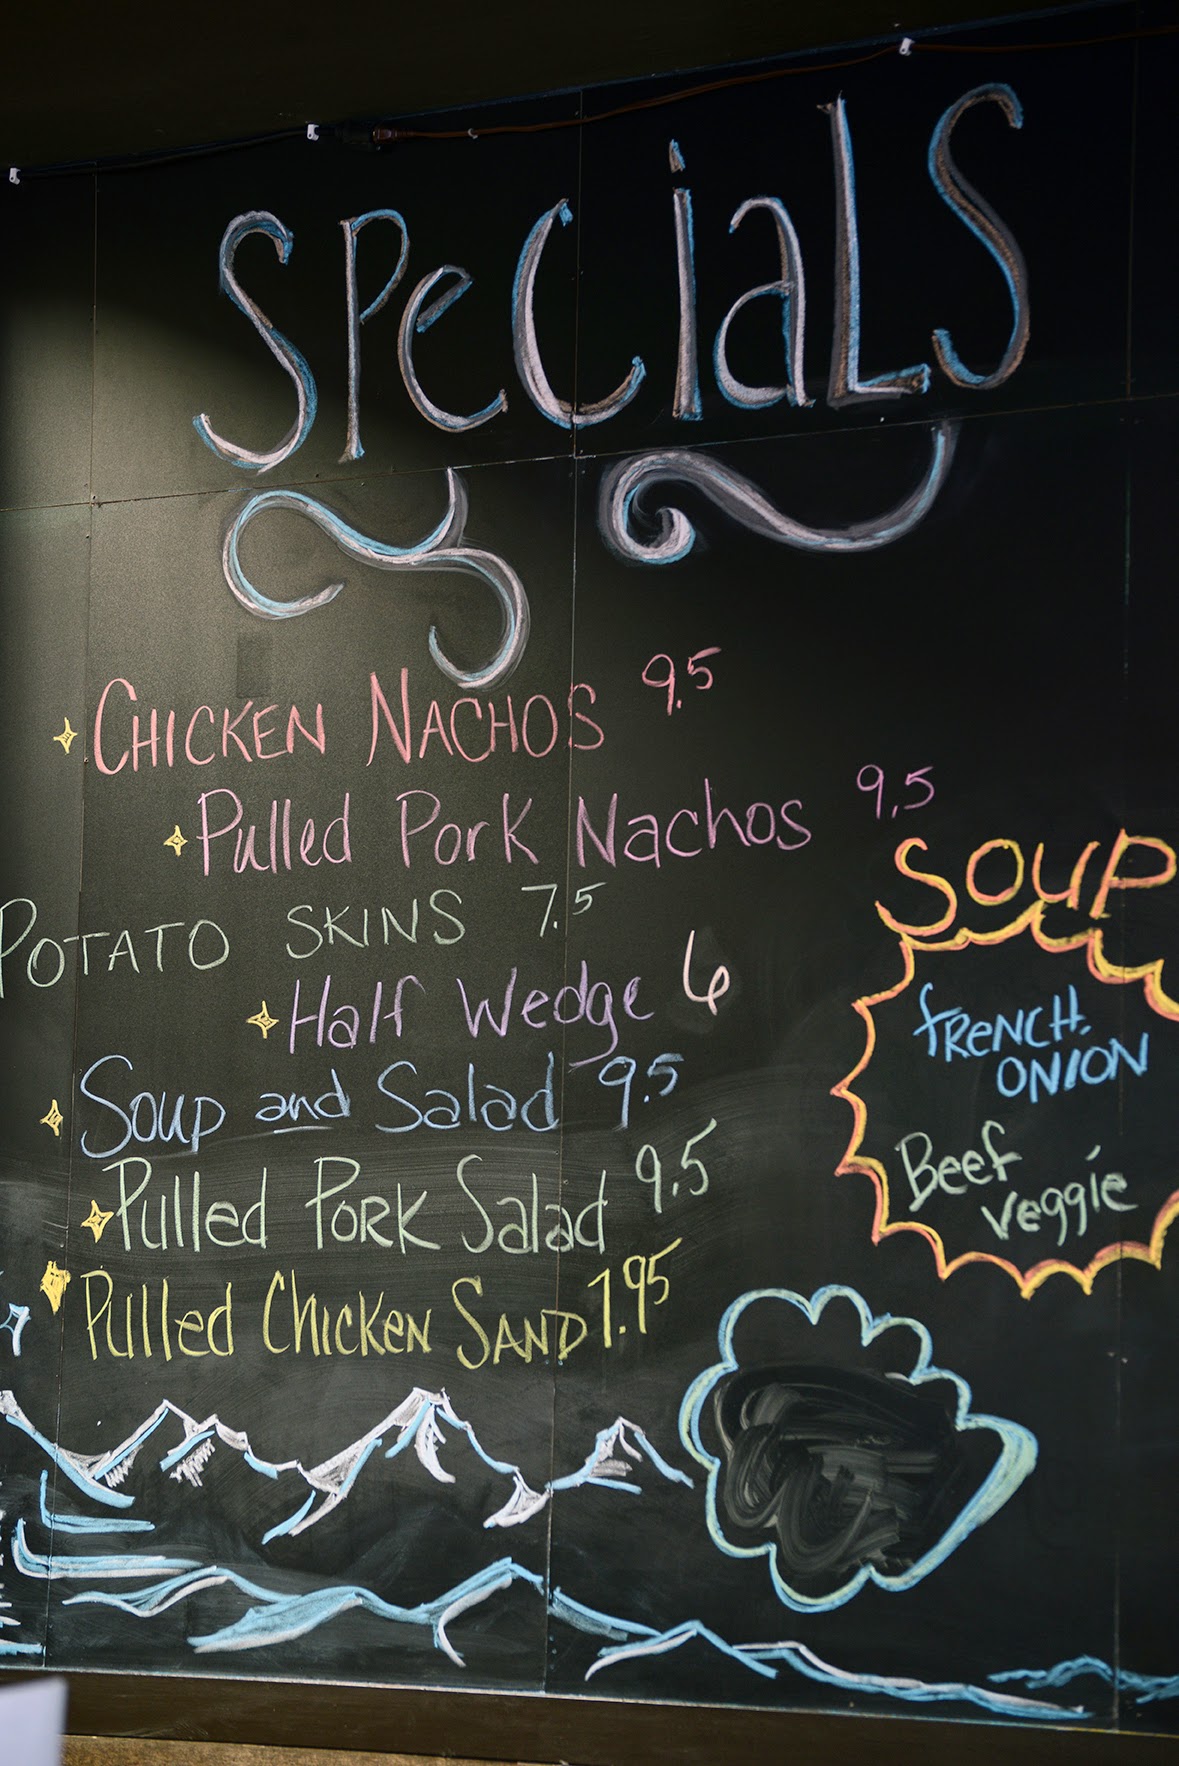 SPeCiaLS
CHICKEN NACHOS 9.5
Pulled Pork Nachos 9.5
POTATO SKINS 7.5
Half Wedge 6
Soup and Salad 9.5
Pulled Pork Salad 9.5
Pulled Chicken Sand 7.95
SOUP
fRENCH
ONION
Beef
veggie